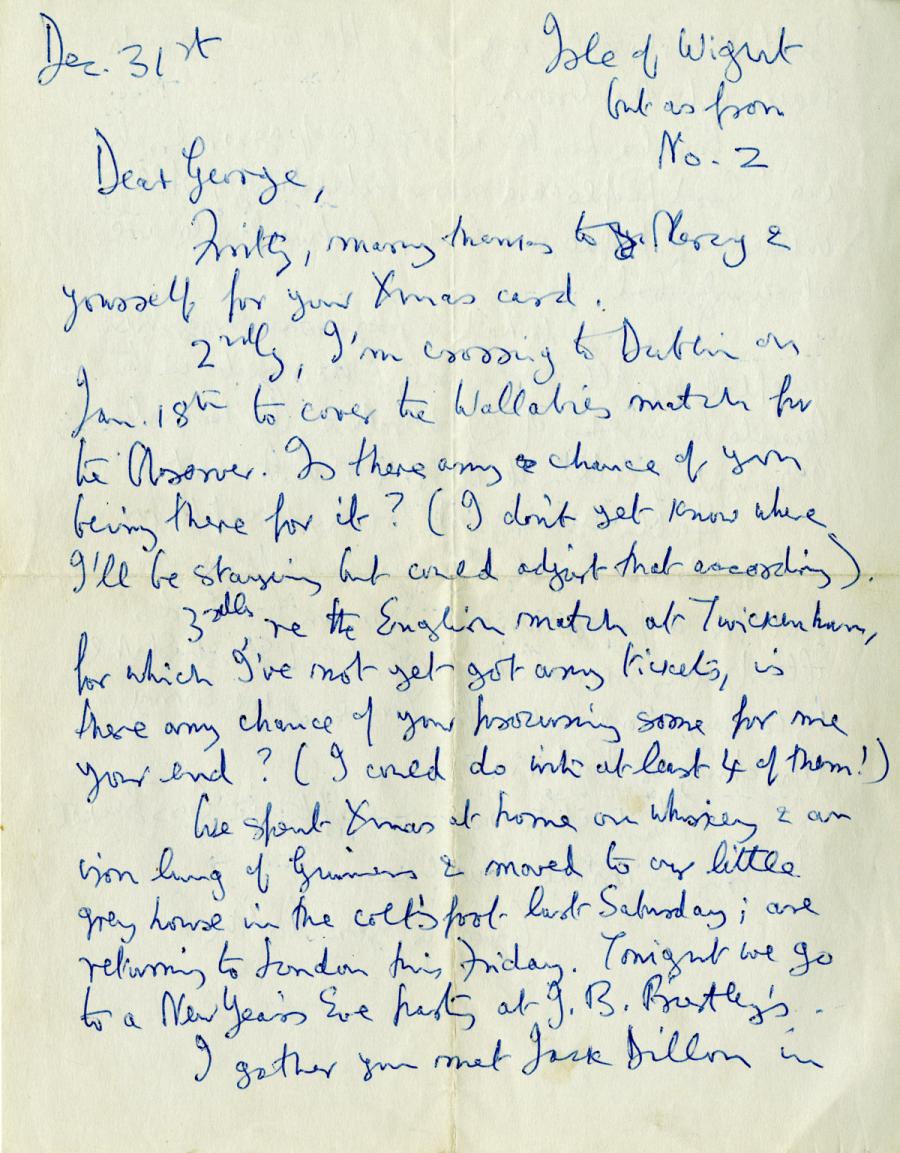 Dec. 31st
Isle of Wight
but as from
No. 2
Dear George,
Firstly, many thanks to Mercy &
yourself for your Xmas card.
2ndly, I'm crossing to Dublin on
Jan. 18th to cover the Wallabies match for
the Observer. Is there any chance of you
being there for it? (I don't yet know where
I'll be staying but could adjust that according).
3rdly, re the English match at Twickenham,
for which I've not yet got any tickets, is
there any chance of your procuring some for me
your end? (I could do with at least 4 of them!)
We spent Xmas at home on whiskey & an
iron lung of Guinness & moved to our little
grey house in the colt's foot last Saturday; are
returning to London this Friday. Tonight we go
to a New Year's Eve party at J. B. Priestley's.
I gather you met Jack Dillon in